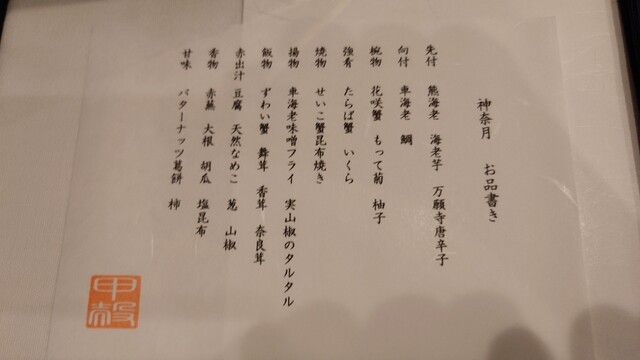 神奈月 お品書き
先付 熊海老 海老芋 万願寺唐辛子
向付 車海老 鯛
椀物 花咲蟹 もって菊 柚子
強肴 たらば蟹 いくら
焼物 せいこ蟹昆布焼き
揚物 車海老味噌フライ 実山椒のタルタル
飯物 ずわい蟹 舞茸 香茸 奈良茸
赤出汁 豆腐 天然なめこ 葱 山椒
香物 赤蕪 大根 胡瓜 塩昆布
甘味 バターナッツ葛餅 柿
甲殻